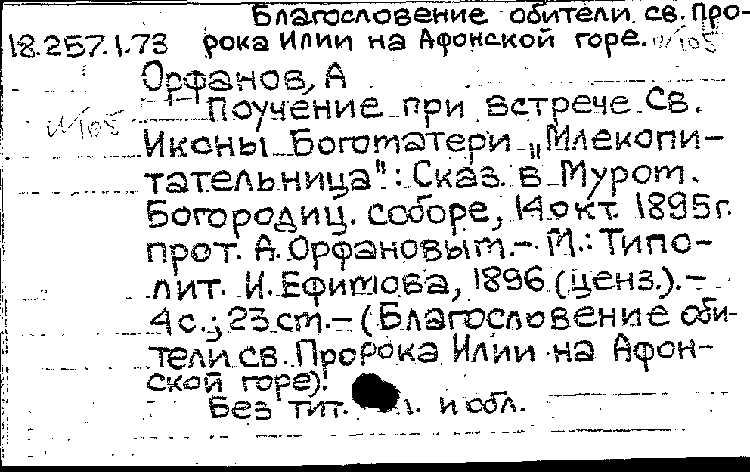 Благословение обители св. Про-
18.257.1.73 рока Илии на Афонской горе. И/105
Орфанов, А
И/105 Поучение при встрече Св.
Иконы Богоматери „Млекопи-
тательница": Сказ. в Муром.
Богородиц. соборе, 14 окт. 1895 г.
прот. А. Орфановым. - М.: Типо-
лит. И. Ефимова, 1896 (ценз.). -
4 с.; 23 cm. - (Благословение оби-
тели св. Пророка Илии на Афон-
ской горе).
Без тит. л. и обл.